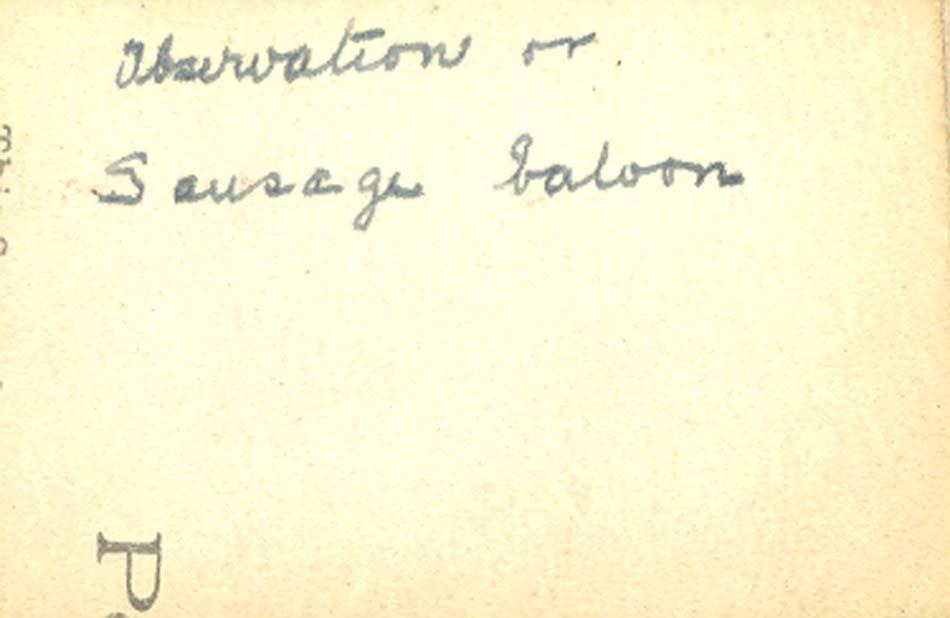 Observation or
Sausage baloon
P